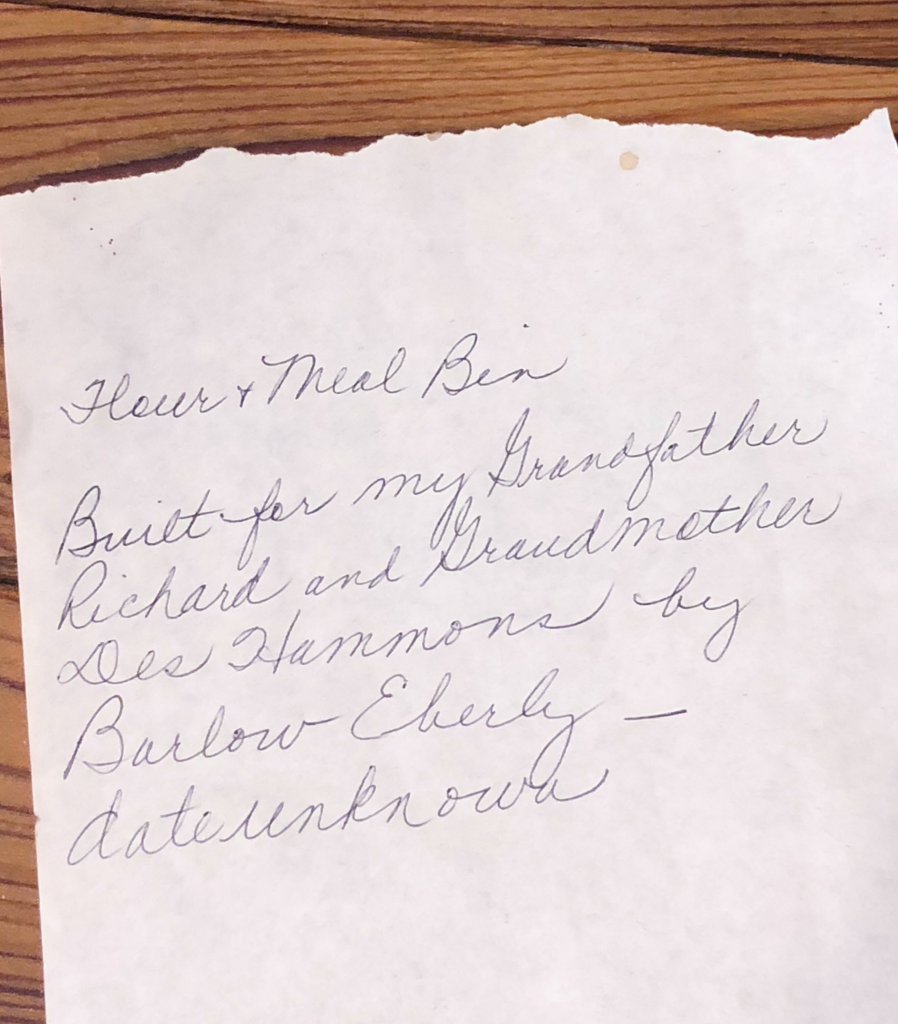 Flour + Meal Bin
Built for my Grandfather
Richard and Grandmother
Des Hammons by
Barlow Eberly —
date unknown